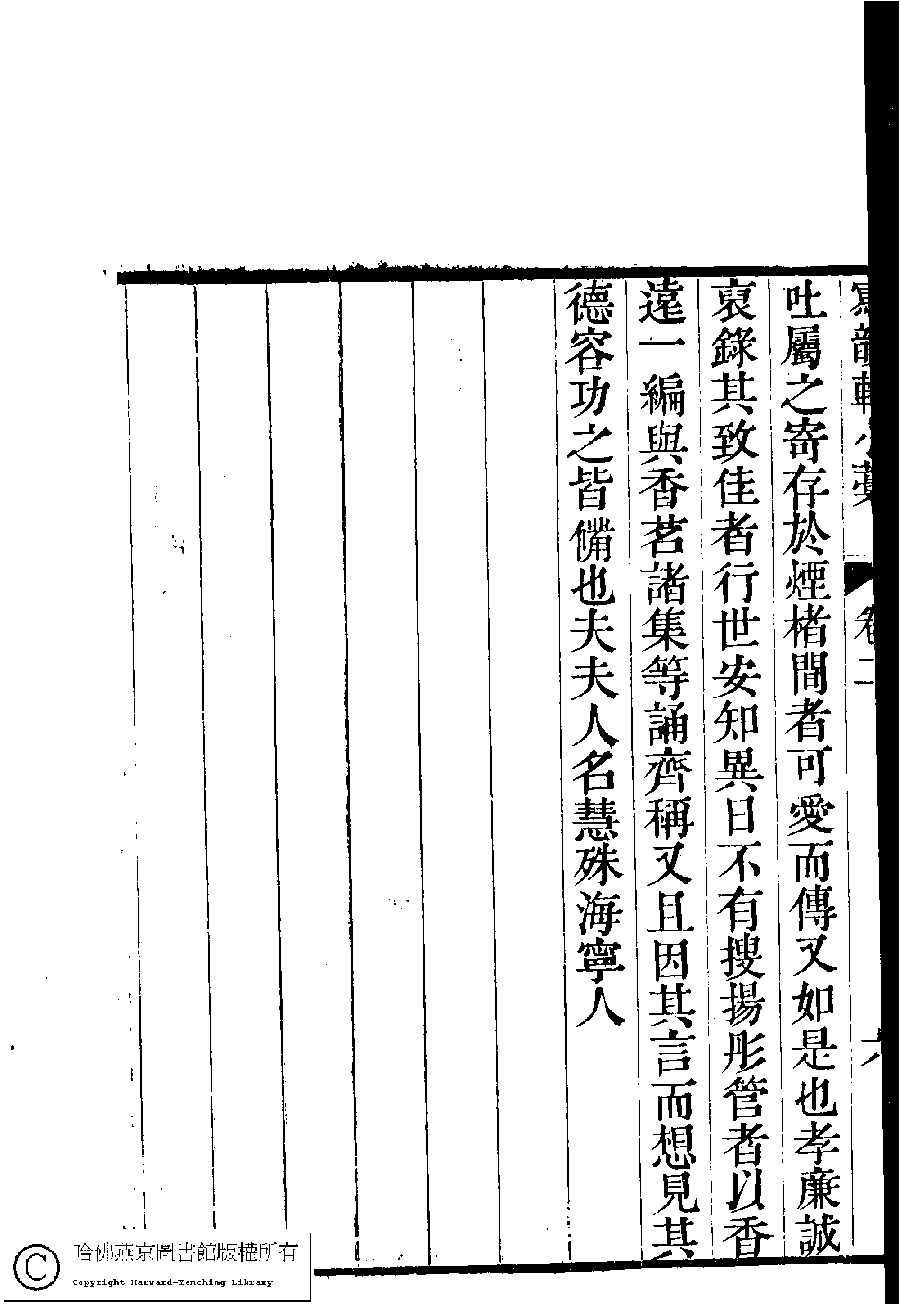 寫韻軒小藁 卷二 六
吐屬之寄存於煙楮間者可愛而傳又如是也孝廉誠
裒錄其致佳者行世安知異日不有搜揚彤管者以香
遠一編與香茗諸集等誦齊稱又且因其言而想見其
德容功之皆備也夫夫人名慧殊海寧人
哈佛燕京圖書館版權所有
Copyright Harvard-Yenching Library